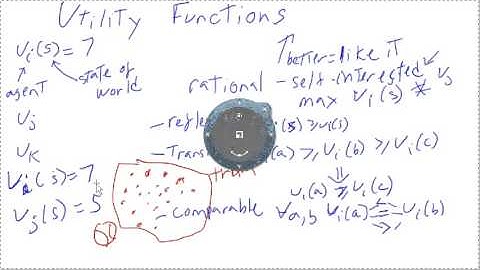 Utility Functions
u_i(s) = 7
agent
state of world
u_j
u_k
u_i(s) = 7
u_j(s) = 5
better = like it
rational
- self-interested
max u_i(s)
u_j
- refle
u_i(s)
- Trans
(a) ≥ u_i(b) ≥ u_i(c)
u_i(a) ≥ u_i(c)
- comparable
∀a,b u_i(a)
u_i(b)